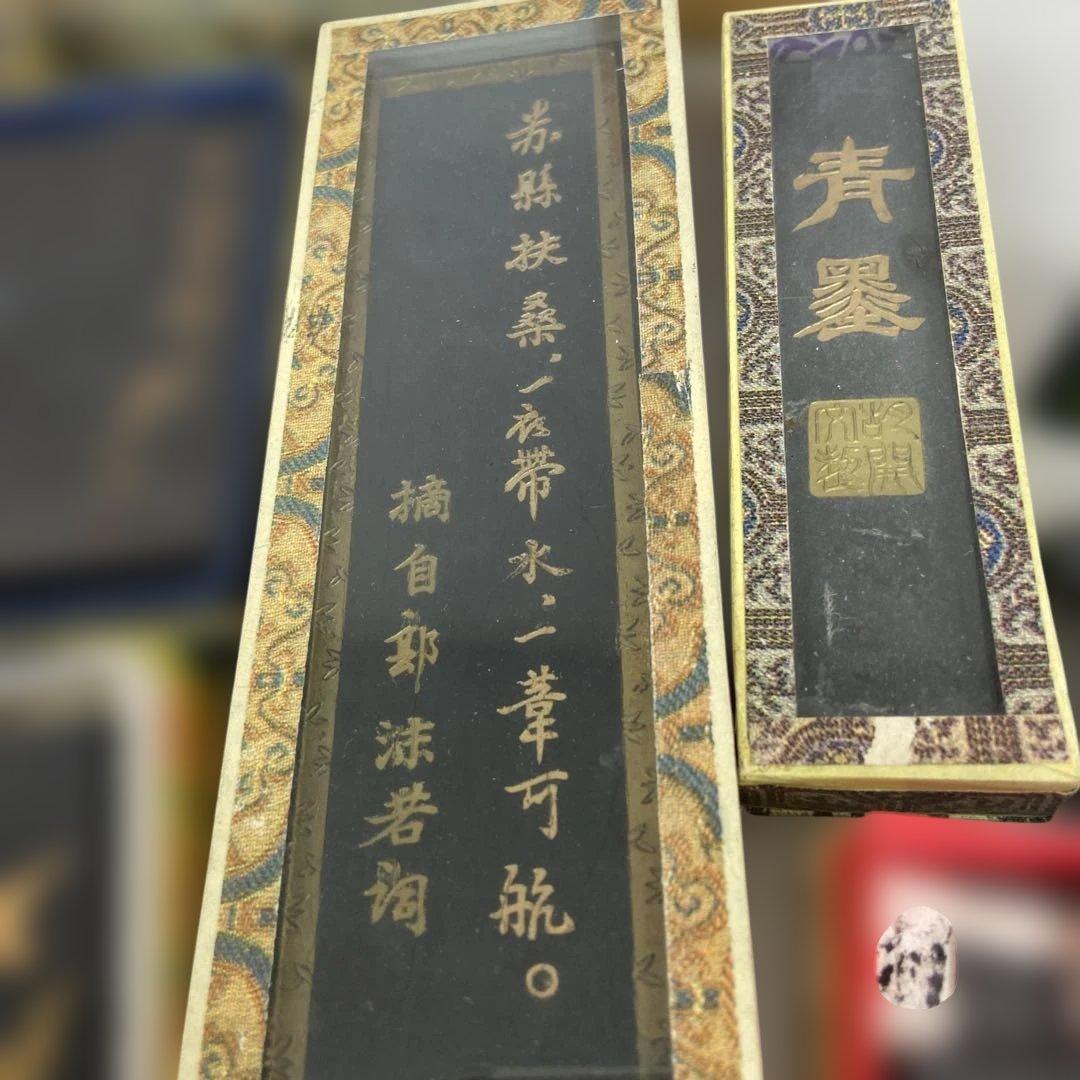 赤縣扶桑，一衣帶水；一葦可航。
摘自郭沫若詞
青墨
胡開
文製